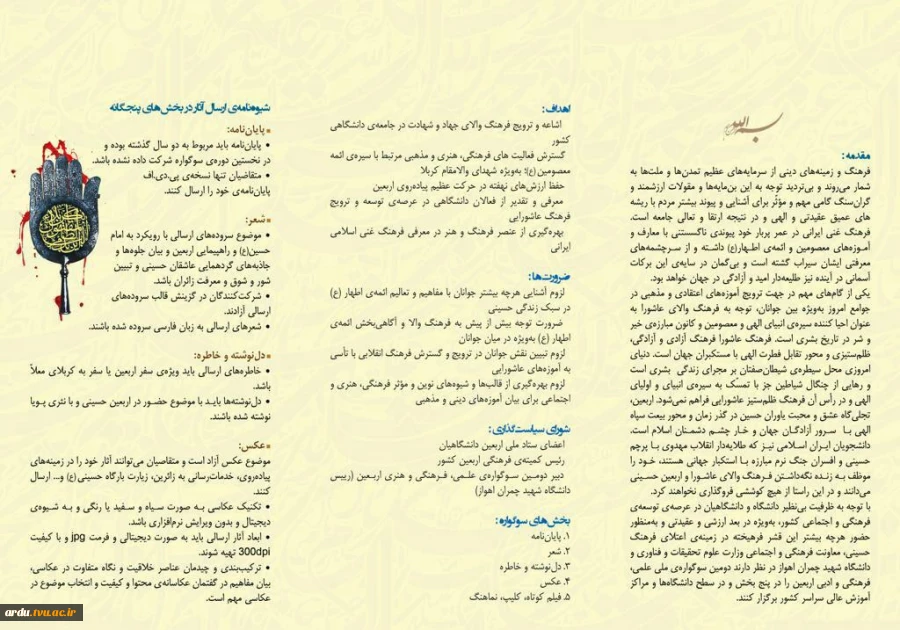 بسم الله
مقدمه:
فرهنگ و زمینه‌های دینی از سرمایه‌های عظیم تمدن‌ها و ملت‌ها به
شمار می‌روند و بی‌تردید توجه به این بن‌مایه‌ها و مقولات ارزشمند و
گران‌سنگ گامی مهم و مؤثر برای آشنایی و پیوند بیشتر مردم با ریشه
های عمیق عقیدتی و الهی و در نتیجه ارتقا و تعالی جامعه است.
فرهنگ غنی ایرانی در عمر پربار خود پیوندی ناگسستنی با معارف و
آموزه‌های معصومین و ائمه‌ی اطهار(ع) داشته و از سرچشمه‌های
معرفتی ایشان سیراب گشته است و بی‌گمان در سایه‌ی این برکات
آسمانی در آینده نیز طلیعه‌دار امید و آزادگی در جهان خواهد بود.
یکی از گام‌های مهم در جهت ترویج آموزه‌های اعتقادی و مذهبی در
جوامع امروز به‌ویژه بین جوانان، توجه به فرهنگ والای عاشورا به
عنوان احیا کننده سیره‌ی انبیای الهی و معصومین و کانون مبارزه‌ی خیر
و شر در تاریخ بشری است. فرهنگ عاشورا فرهنگ آزادی و آزادگی،
ظلم‌ستیزی و محور تقابل فطرت الهی با مستکبران جهان است. دنیای
امروزی محل سیطره‌ی شیطان‌صفتان بر مجرای زندگی بشری است
و رهایی از چنگال شیاطین جز با تمسک به سیره‌ی انبیای و اولیای
الهی و در رأس آن فرهنگ ظلم‌ستیز عاشورایی فراهم نمی‌شود. اربعین،
تجلی‌گاه عشق و محبت یاوران حسین در گذر زمان و محور بیعت سپاه
الهی با سرور آزادگان جهان و خار چشم دشمنان اسلام است.
دانشجویان ایران اسلامی نیز که طلایه‌دار انقلاب مهدوی با پرچم
حسینی و افسران جنگ نرم مبارزه با استکبار جهانی هستند، خود را
موظف به زنده نگه‌داشتن فرهنگ والای عاشورا و اربعین حسینی
می‌دانند و در این راستا از هیچ کوششی فروگذاری نخواهند کرد.
با توجه به ظرفیت بی‌نظیر دانشگاه و دانشگاهیان در عرصه‌ی توسعه‌ی
فرهنگی و اجتماعی کشور، به‌ویژه در بعد ارزشی و عقیدتی و به‌منظور
حضور هرچه بیشتر این قشر فرهیخته در زمینه‌ی اعتلای فرهنگ
حسینی، معاونت فرهنگی و اجتماعی وزارت علوم تحقیقات و فناوری و
دانشگاه شهید چمران اهواز در نظر دارند دومین سوگواره‌ی ملی علمی،
فرهنگی و ادبی اربعین را در پنج بخش و در سطح دانشگاه‌ها و مراکز
آموزش عالی سراسر کشور برگزار کنند.
اهداف:
اشاعه و ترویج فرهنگ والای جهاد و شهادت در جامعه‌ی دانشگاهی
کشور
گسترش فعالیت های فرهنگی، هنری و مذهبی مرتبط با سیره‌ی ائمه
معصومین (ع)؛ به‌ویژه شهدای والامقام کربلا
حفظ ارزش‌های نهفته در حرکت عظیم پیاده‌روی اربعین
معرفی و تقدیر از فعالان دانشگاهی در عرصه‌ی توسعه و ترویج
فرهنگ عاشورایی
بهره‌گیری از عنصر فرهنگ و هنر در معرفی فرهنگ غنی اسلامی
ایرانی
ضرورت‌ها:
لزوم آشنایی هرچه بیشتر جوانان با مفاهیم و تعالیم ائمه‌ی اطهار (ع)
در سبک زندگی حسینی
ضرورت توجه بیش از پیش به فرهنگ والا و آگاهی‌بخش ائمه‌ی
اطهار (ع) به‌ویژه در میان جوانان
لزوم تبیین نقش جوانان در ترویج و گسترش فرهنگ انقلابی با تأسی
به آموزه‌های عاشورایی
لزوم بهره‌گیری از قالب‌ها و شیوه‌های نوین و مؤثر فرهنگی، هنری و
اجتماعی برای بیان آموزه‌های دینی و مذهبی
شورای سیاست‌گذاری:
اعضای ستاد ملی اربعین دانشگاهیان
رئیس کمیته‌ی فرهنگی اربعین کشور
دبیر دومین سوگواره‌ی علمی، فرهنگی و هنری اربعین (رییس
دانشگاه شهید چمران اهواز)
بخش‌های سوگواره:
۱. پایان‌نامه
۲. شعر
۳. دل‌نوشته و خاطره
۴. عکس
۵. فیلم کوتاه، کلیپ، نماهنگ
شیوه‌نامه‌ی ارسال آثار در بخش‌های پنجگانه
▪ پایان‌نامه:
• پایان‌نامه باید مربوط به دو سال گذشته بوده و
در نخستین دوره‌ی سوگواره شرکت داده نشده باشد.
• متقاضیان تنها نسخه‌ی پی.دی.اف
پایان‌نامه‌ی خود را ارسال کنند.
▪ شعر:
• موضوع سروده‌های ارسالی با رویکرد به امام
حسین(ع) و راهپیمایی اربعین و بیان جلوه‌ها و
جاذبه‌های گردهمایی عاشقان حسینی و تبیین
شور و شوق و معرفت زائران باشد.
• شرکت‌کنندگان در گزینش قالب سروده‌های
ارسالی آزادند.
• شعرهای ارسالی به زبان فارسی سروده شده باشند.
▪ دل‌نوشته و خاطره:
• خاطره‌های ارسالی باید ویژه‌ی سفر اربعین یا سفر به کربلای معلاً
باشد.
• دل‌نوشته‌ها باید با موضوع حضور در اربعین حسینی و با نثری پویا
نوشته شده باشند.
▪ عکس:
موضوع عکس آزاد است و متقاضیان می‌توانند آثار خود را در زمینه‌های
پیاده‌روی، خدمات‌رسانی به زائرین، زیارت بارگاه حسینی (ع) و... ارسال
کنند.
• تکنیک عکاسی به صورت سیاه و سفید یا رنگی و به شیوه‌ی
دیجیتال و بدون ویرایش نرم‌افزاری باشد.
• ابعاد آثار ارسالی باید به صورت دیجیتالی و فرمت jpg و با کیفیت
300dpi تهیه شوند.
• ترکیب‌بندی و چیدمان عناصر خلاقیت و نگاه متفاوت در عکاسی،
بیان مفاهیم در گفتمان عکاسانه‌ی محتوا و کیفیت و انتخاب موضوع در
عکاسی مهم است.
ardu.tvu.ac.ir